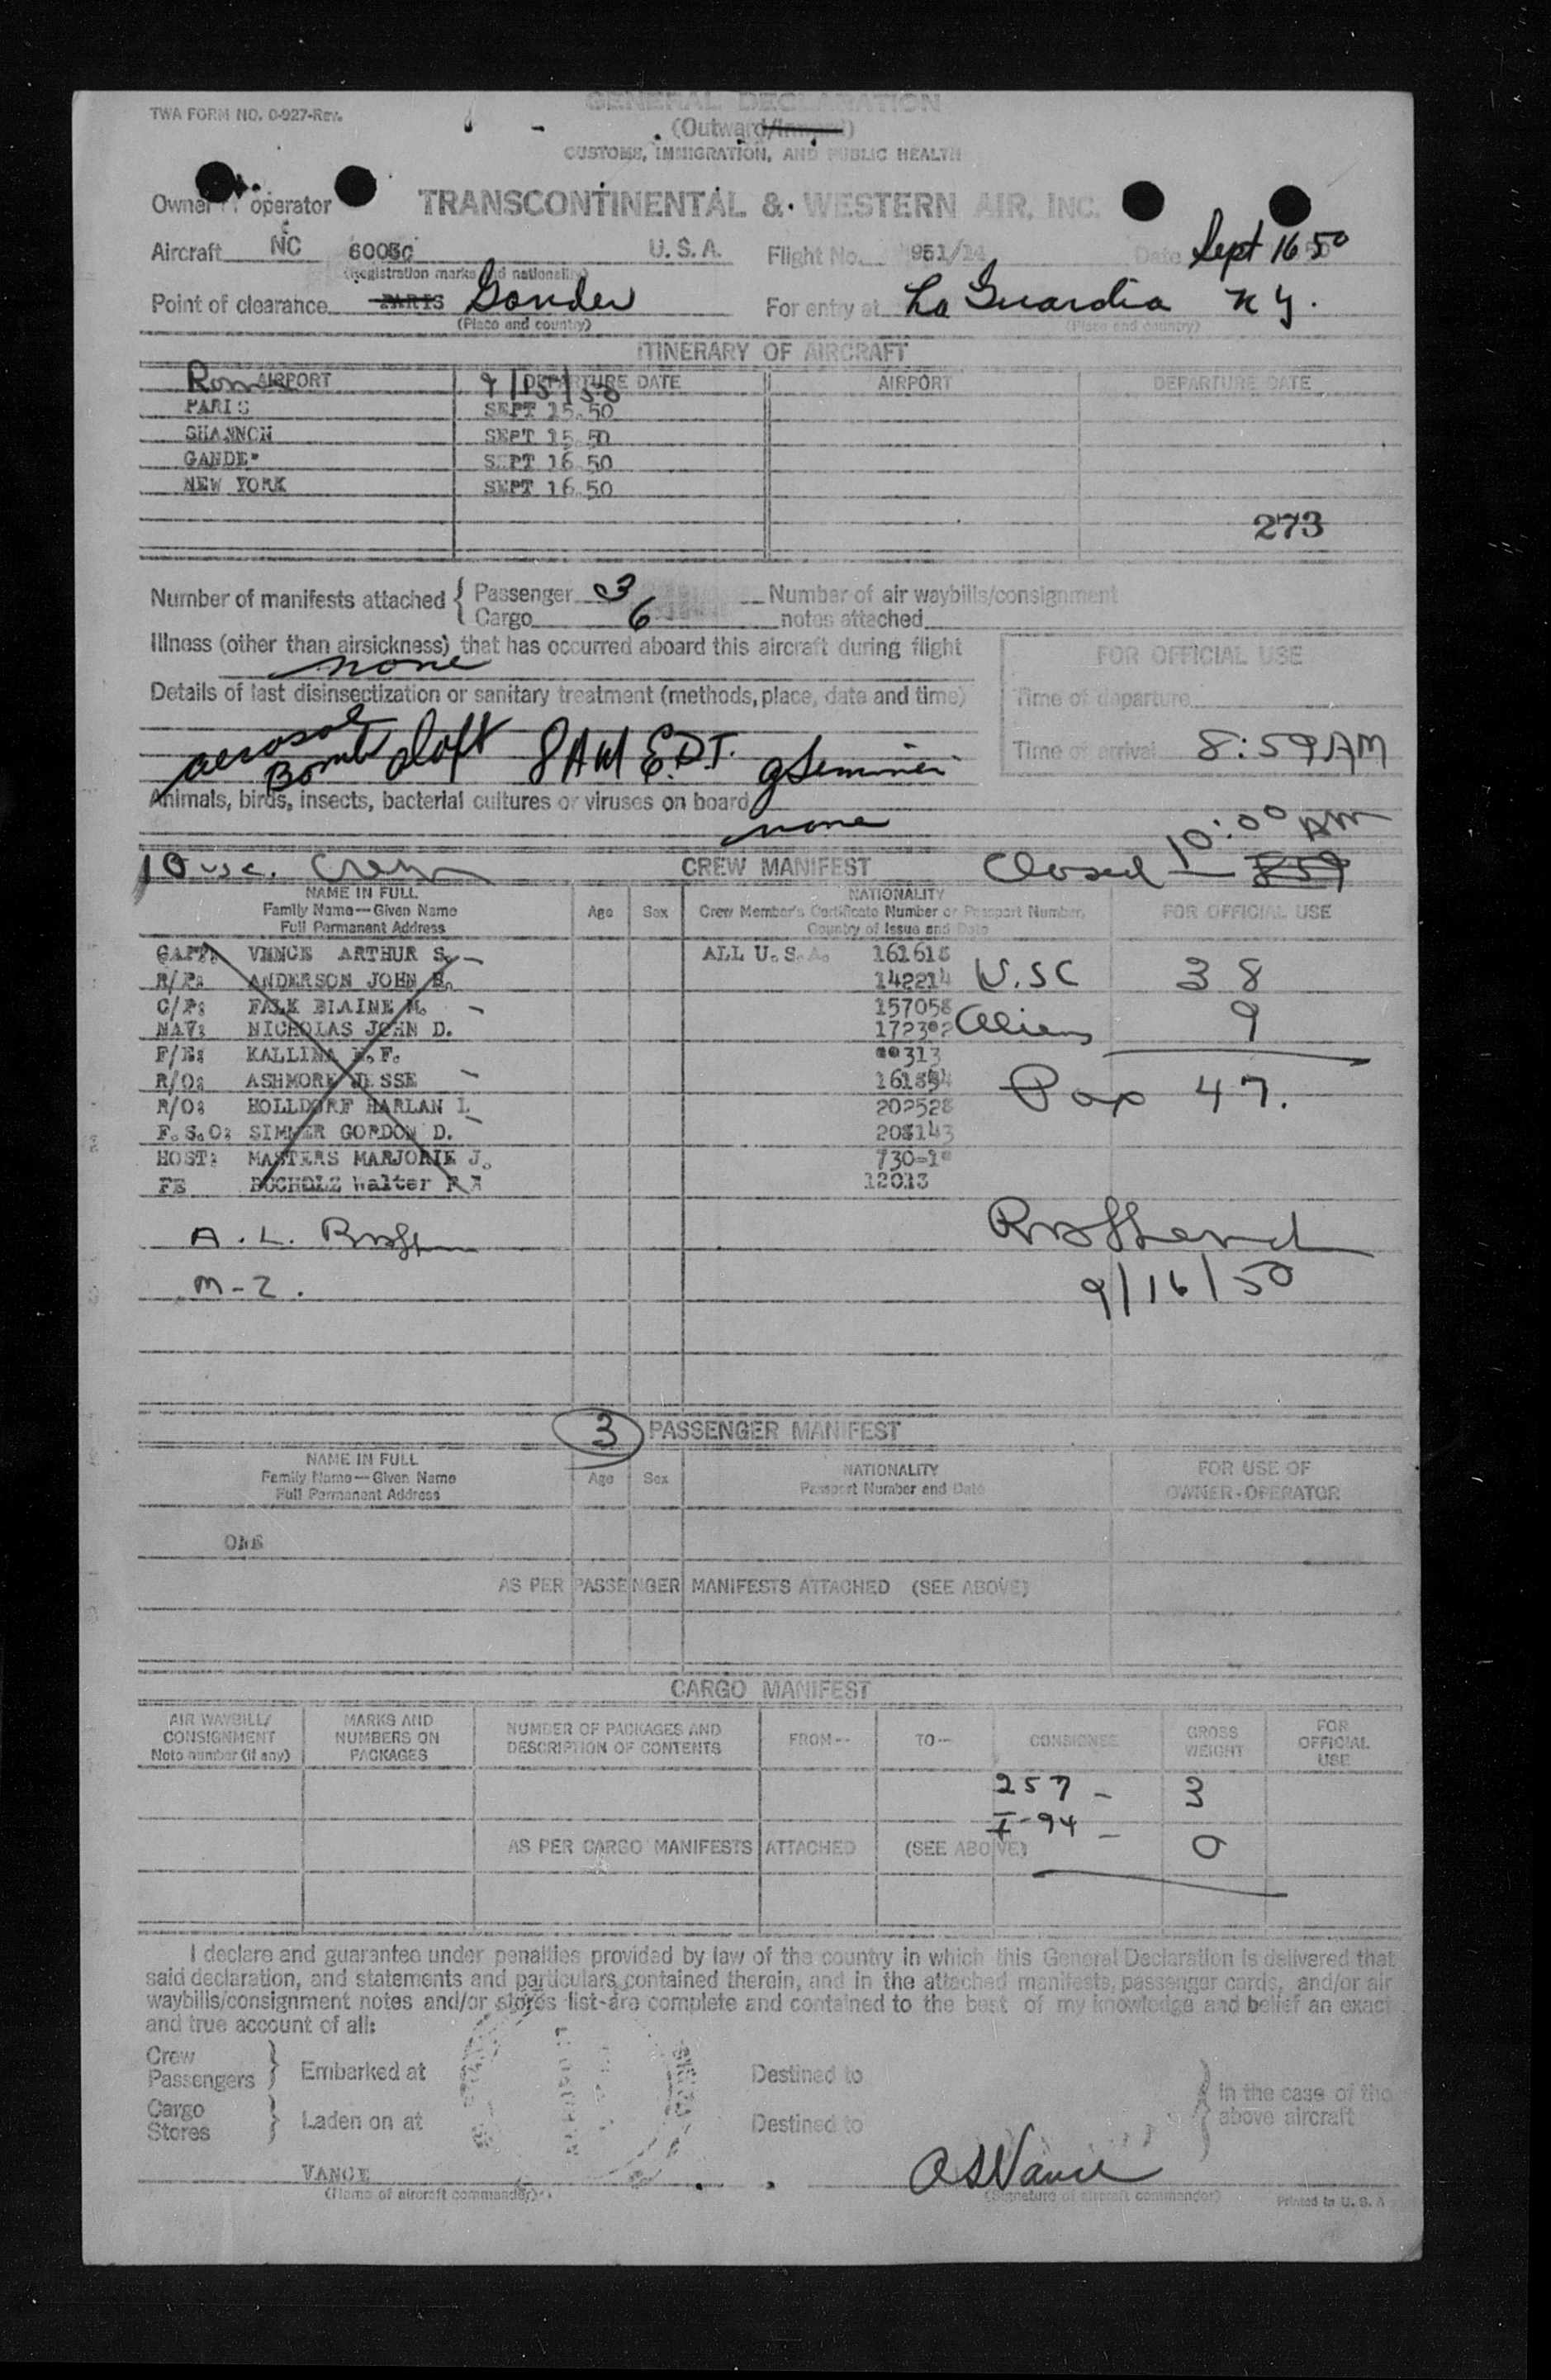 TWA FORM NO. 0-927-Rev.
GENERAL DECLARATION
(Outward/Inward)
CUSTOMS, IMMIGRATION, AND PUBLIC HEALTH
Owner operator TRANSCONTINENTAL & WESTERN AIR, INC.
Aircraft NC U.S.A. Flight No. 951/14 Date Sept 16 50
(Registration marks and nationality)
Point of clearance PARIS Gander For entry at La Guardia N Y.
(Place and country) (Place and country)
ITINERARY OF AIRCRAFT
AIRPORT DEPARTURE DATE AIRPORT DEPARTURE DATE
Rome 9/15/50
PARIS SEPT 15.50
SHANNON SEPT 15 50
GANDE SEPT 16 50
NEW YORK SEPT 16.50
273
Number of manifests attached { Passenger 3 Number of air waybills/consignment
Cargo 6 notes attached
Illness (other than airsickness) that has occurred aboard this aircraft during flight
none
FOR OFFICIAL USE
Details of last disinsectization or sanitary treatment (methods, place, date and time)
Time of departure
aerosol Bomb aloft 8 AM E.D.T.
Time of arrival 8:59 AM
Animals, birds, insects, bacterial cultures or viruses on board
none
10:00 AM
10 usc. Crew CREW MANIFEST Closed — 859
NAME IN FULL NATIONALITY
Family Name—Given Name Age Sex Crew Member's Certificate Number or Passport Number, FOR OFFICIAL USE
Full Permanent Address Country of Issue and Date
CAPT: VENCE ARTHUR S. — ALL U.S.A. 161618
R/P: ANDERSON JOHN 142214 U.SC 38
C/P: FALK BLAINE M. — 157058
NAV: NICHOLAS JOHN D. Aliens 9
F/E: KALLINA 313
R/O: ASHMORE JESSE —
Pax 47.
R/O: HOLLDORF HARLAN 202528
F.S.O: SIMMER GORDON D. —
HOST: MASTERS MARJORIE J.
FE BUCHOLZ Walter 12013
A. L.
M-2.
9/16/50
3 PASSENGER MANIFEST
NAME IN FULL NATIONALITY FOR USE OF
Family Name—Given Name Age Sex Passport Number and Date OWNER-OPERATOR
Full Permanent Address
ONE
AS PER PASSENGER MANIFESTS ATTACHED (SEE ABOVE)
CARGO MANIFEST
AIR WAYBILL/ MARKS AND NUMBER OF PACKAGES AND FROM— TO— CONSIGNEE GROSS FOR
CONSIGNMENT NUMBERS ON DESCRIPTION OF CONTENTS WEIGHT OFFICIAL
Note number (if any) PACKAGES USE
257 — 3
I-94 —
AS PER CARGO MANIFESTS ATTACHED (SEE ABOVE)
I declare and guarantee under penalties provided by law of the country in which this General Declaration is delivered that
said declaration, and statements and particulars contained therein, and in the attached manifests, passenger cards, and/or air
waybills/consignment notes and/or stores list-are complete and contained to the best of my knowledge and belief an exact
and true account of all:
Crew
Passengers } Embarked at Destined to } in the case of the
Cargo above aircraft
Stores } Laden on at Destined to
VANCE A S Vance
(Name of aircraft commander) (Signature of aircraft commander) Printed in U. S. A